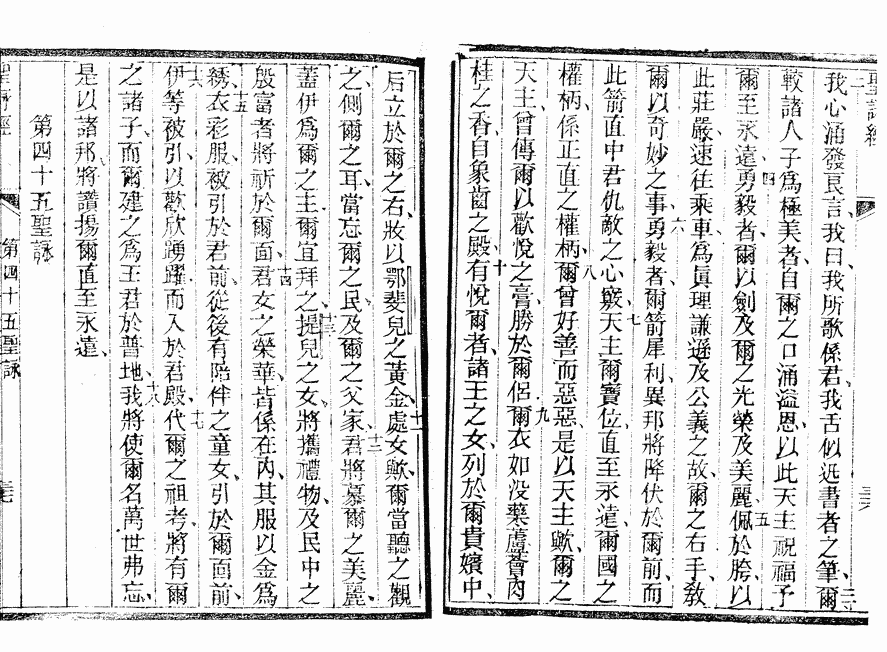 聖詠經 三六
二我心涌發良言、我曰我所歌係君、我舌似迅書者之筆、三爾
較諸人子爲極美者、自爾之口涌溢恩、以此天主祝福予
爾至永遠、四勇毅者、爾以劍及爾之光榮及美麗、佩於胯、五以
此莊嚴、速往乘車、爲眞理謙遜及公義之故、爾之右手教
爾以奇妙之事、六勇毅者、爾箭犀利、異邦將降伏於爾前、而
此箭直中君仇敵之心、七竅天主、爾寶位直至永遠、爾國之
權柄、係正直之權柄、八爾曾好善而惡惡、是以天主歟、爾之
天主、曾傅爾以歡悅之膏、勝於爾侶、九爾衣如没藥蘆薈肉
桂之香、自象齒之殿、有悅爾者、十諸王之女、列於爾貴嬪中、
后立於爾之右、妝以鄂斐兒之黃金、十一處女歟、爾當聽之觀
之、側爾之耳、當忘爾之民、及爾之父家、十二君將慕爾之美麗、
蓋伊爲爾之主、爾宜拜之、十三提兒之女、將攜禮物、及民中之
殷富者、將祈於爾面、十四君女之榮華、皆係在內、其服以金爲
綉衣彩服、十五被引於君前、從後有陪伴之童女、引於爾面前、
十六伊等被引以歡欣踴躍、而入於君殿、十七代爾之祖考、將有爾
之諸子、而爾建之爲王君於普地、十八我將使爾名萬世弗忘、
是以諸邦將讚揚爾直至永遠、
第四十五聖詠
聖詠經 第四十五聖詠 三七